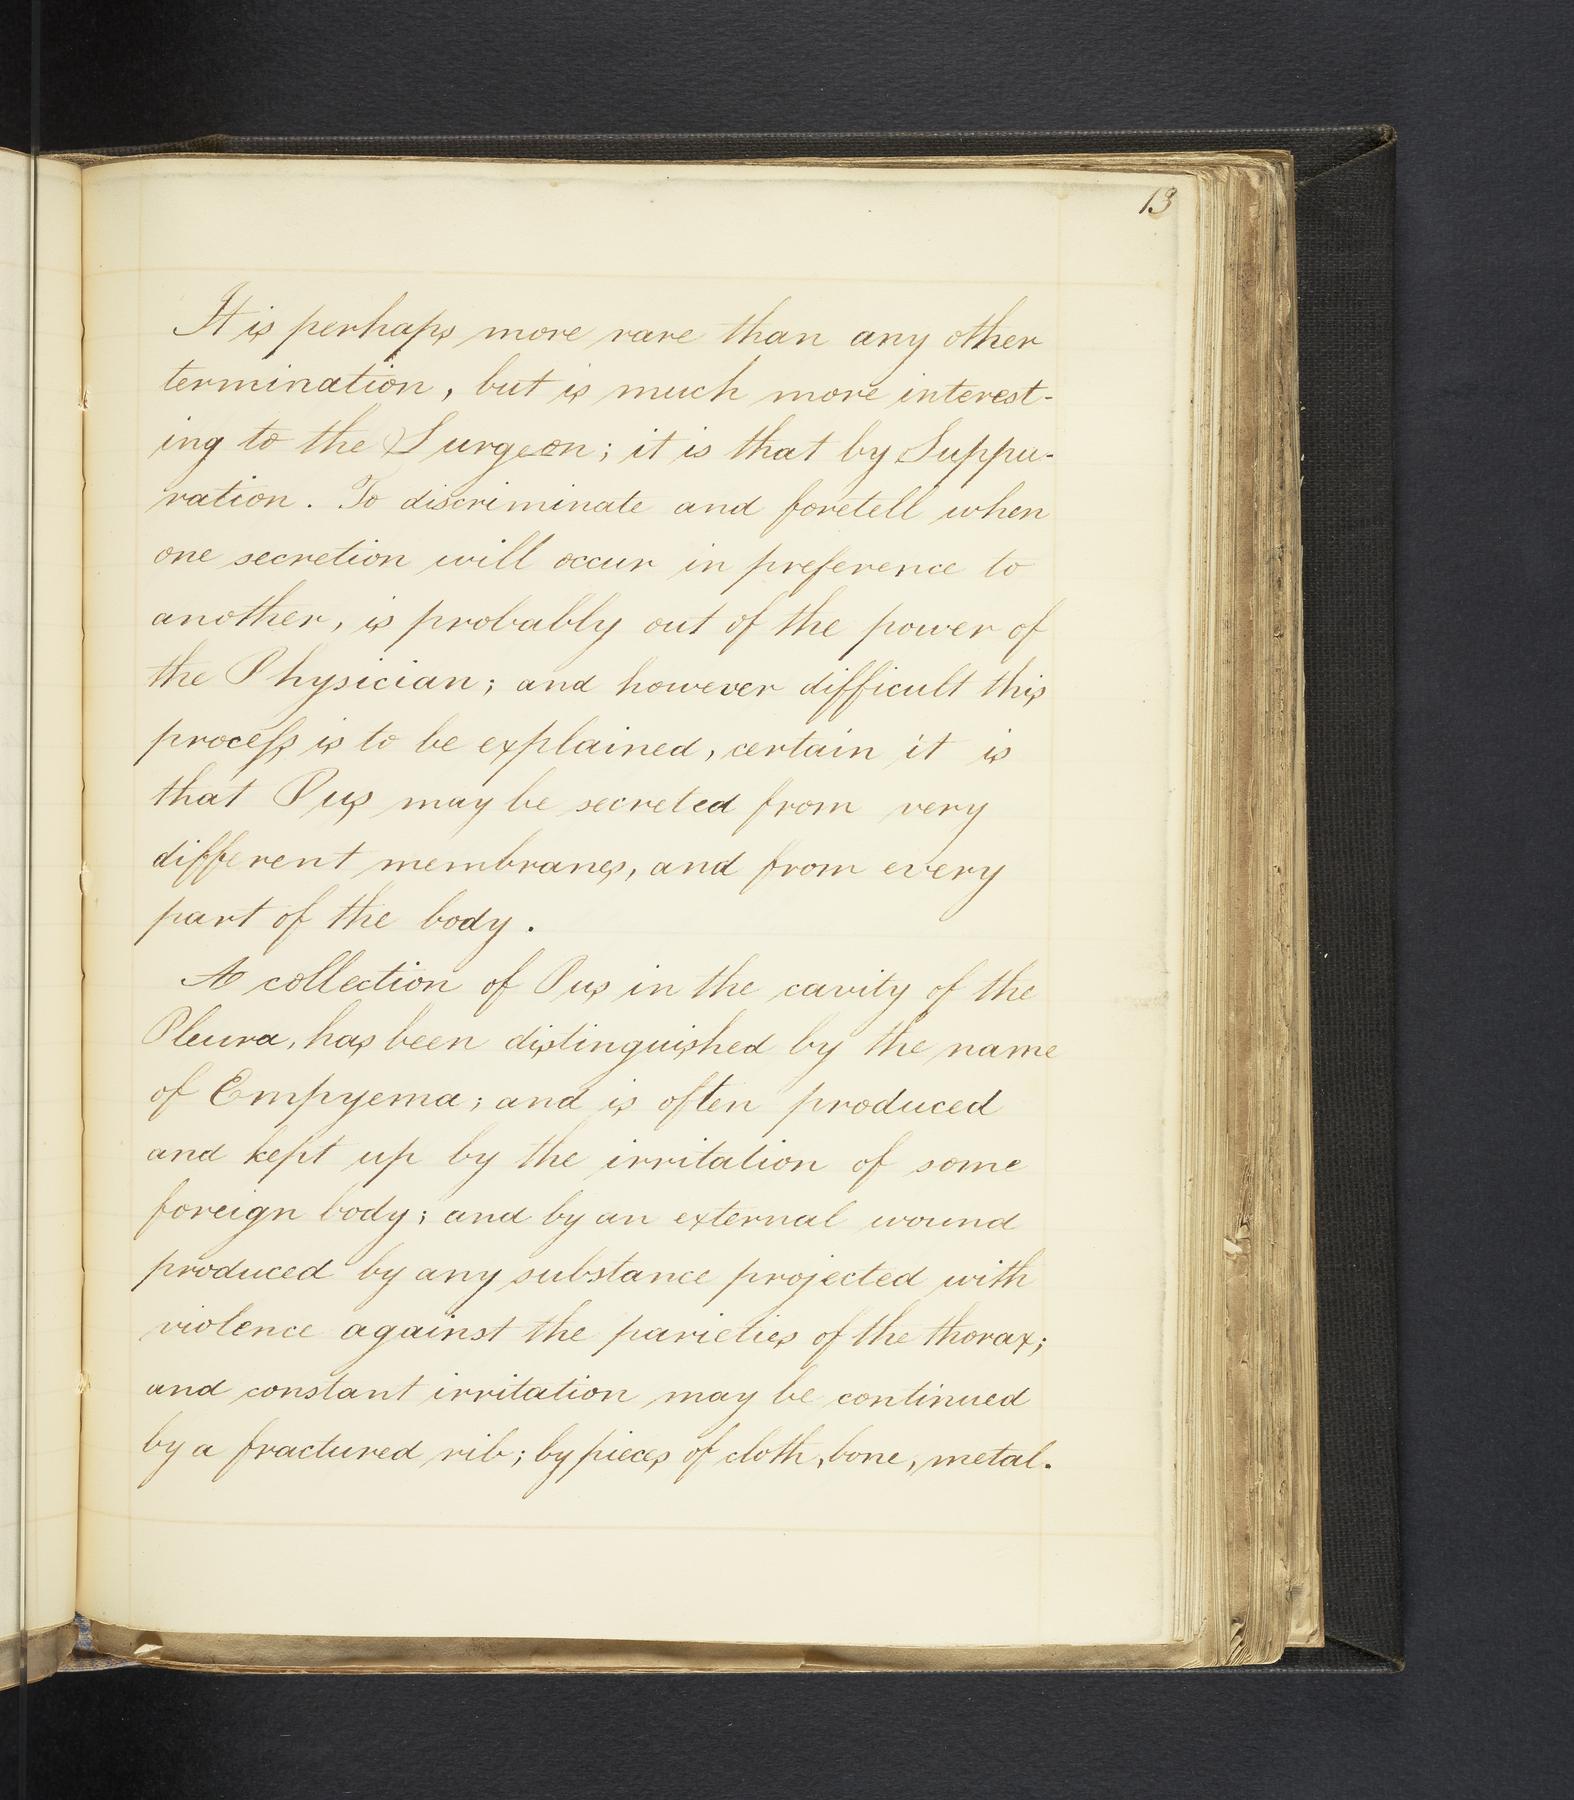 13
It is perhaps more rare than any other
termination, but is much more interest-
ing to the Surgeon; it is that by Suppu-
ration. To discriminate and foretell when
one secretion will occur in preference to
another, is probably out of the power of
the Physician; and however difficult this
process is to be explained, certain it is
that Pus may be secreted from very
different membranes, and from every
part of the body.
A collection of Pus in the cavity of the
Pleura, has been distinguished by the name
of Empyema; and is often produced
and kept up by the irritation of some
foreign body; and by an external wound
produced by any substance projected with
violence against the parieties of the thorax;
and constant irritation may be continued
by a fractured rib; by pieces of cloth, bone, metal.